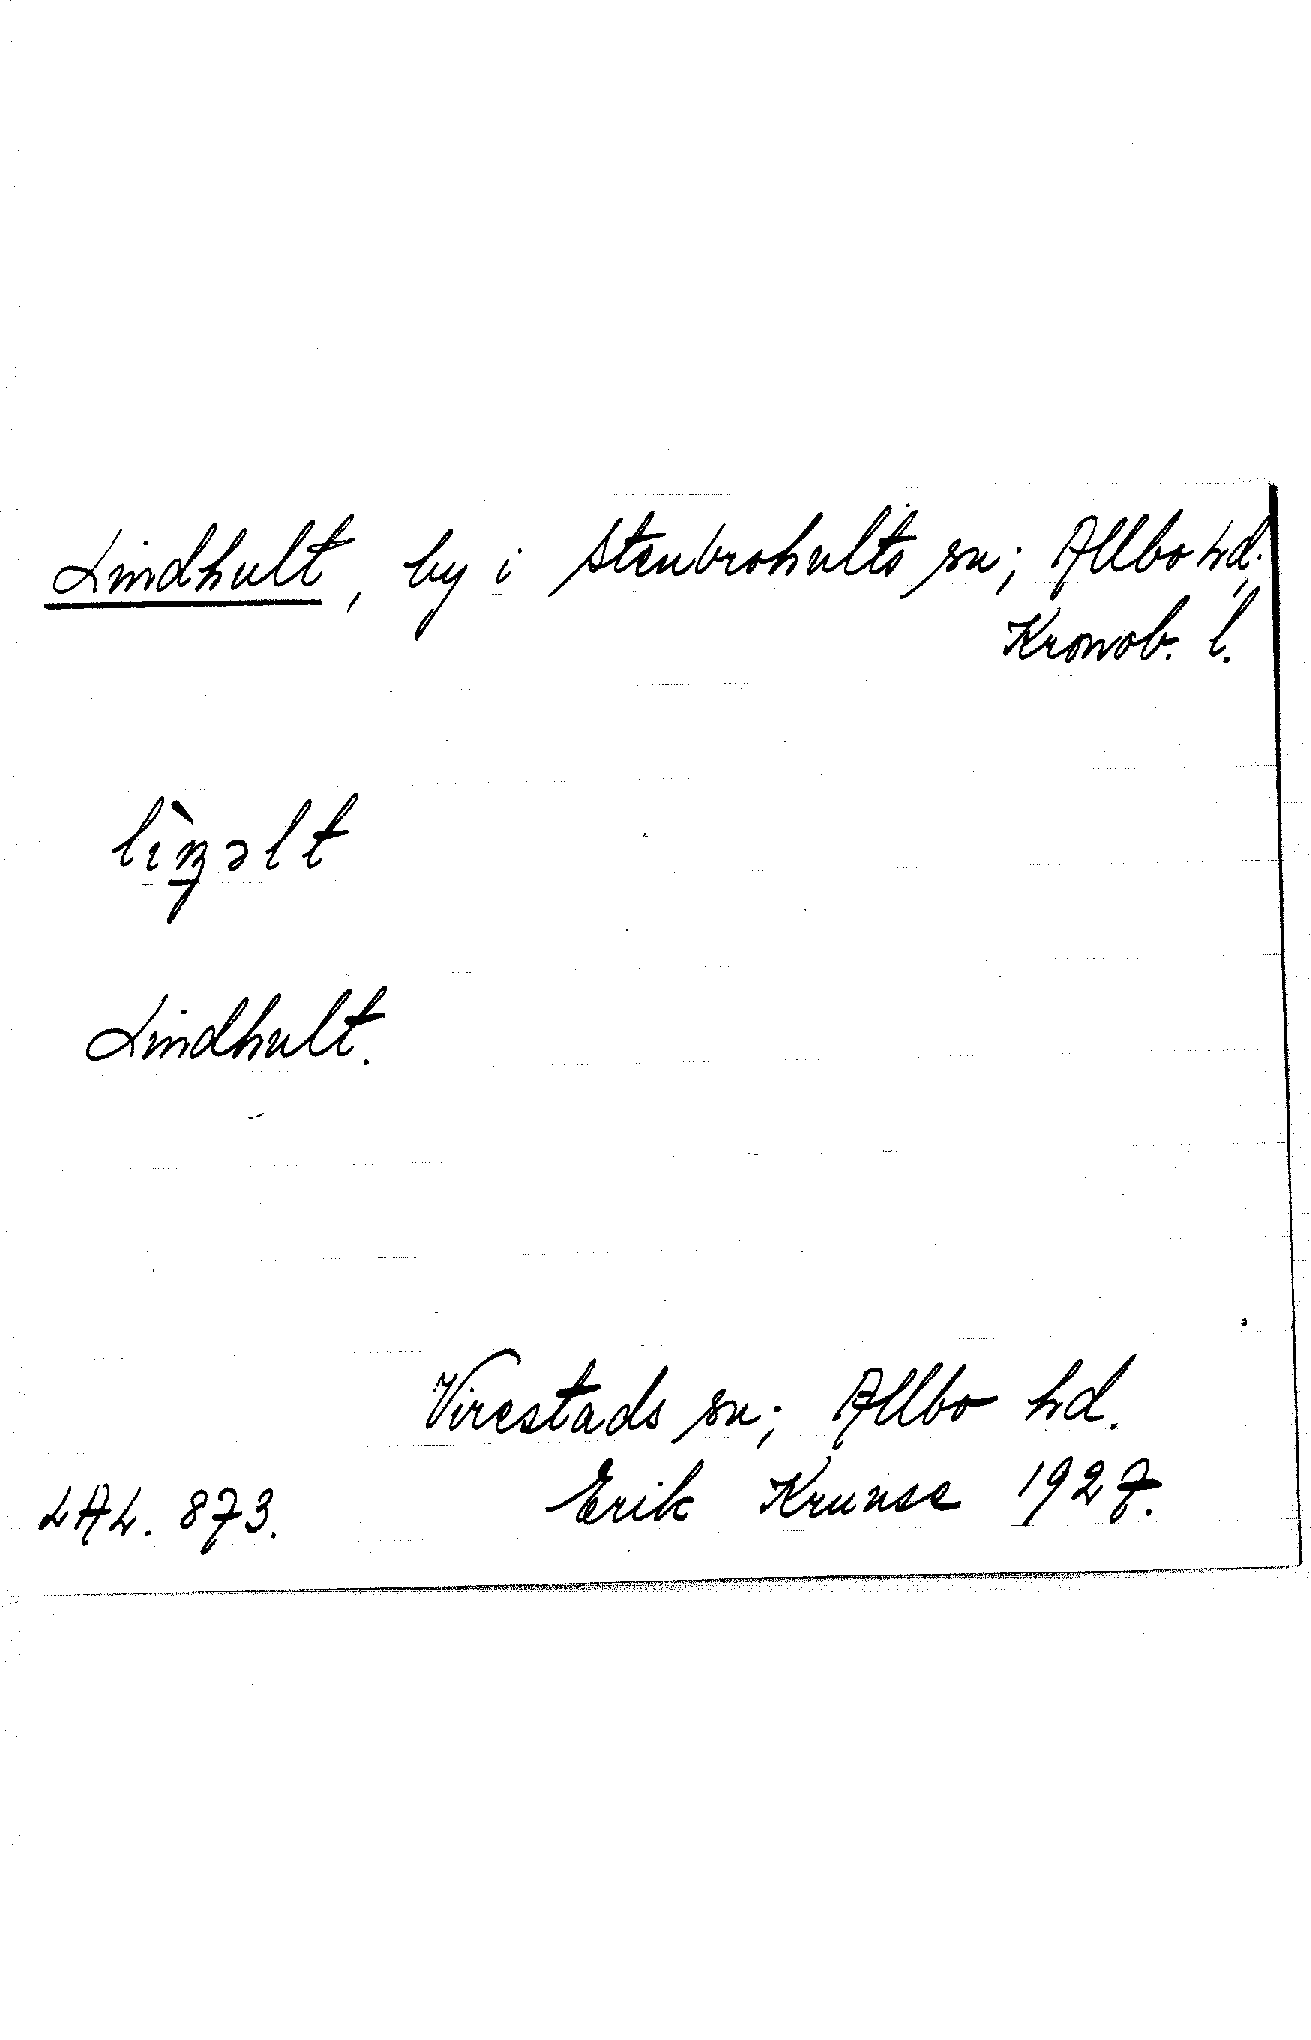 Lindhult, by i Stenbrohults sn; Allbo hd.,
Kronob. l.
Lindhult.
Virestads sn; Allbo hd.
LAL. 873. Erik Krunse 1927.